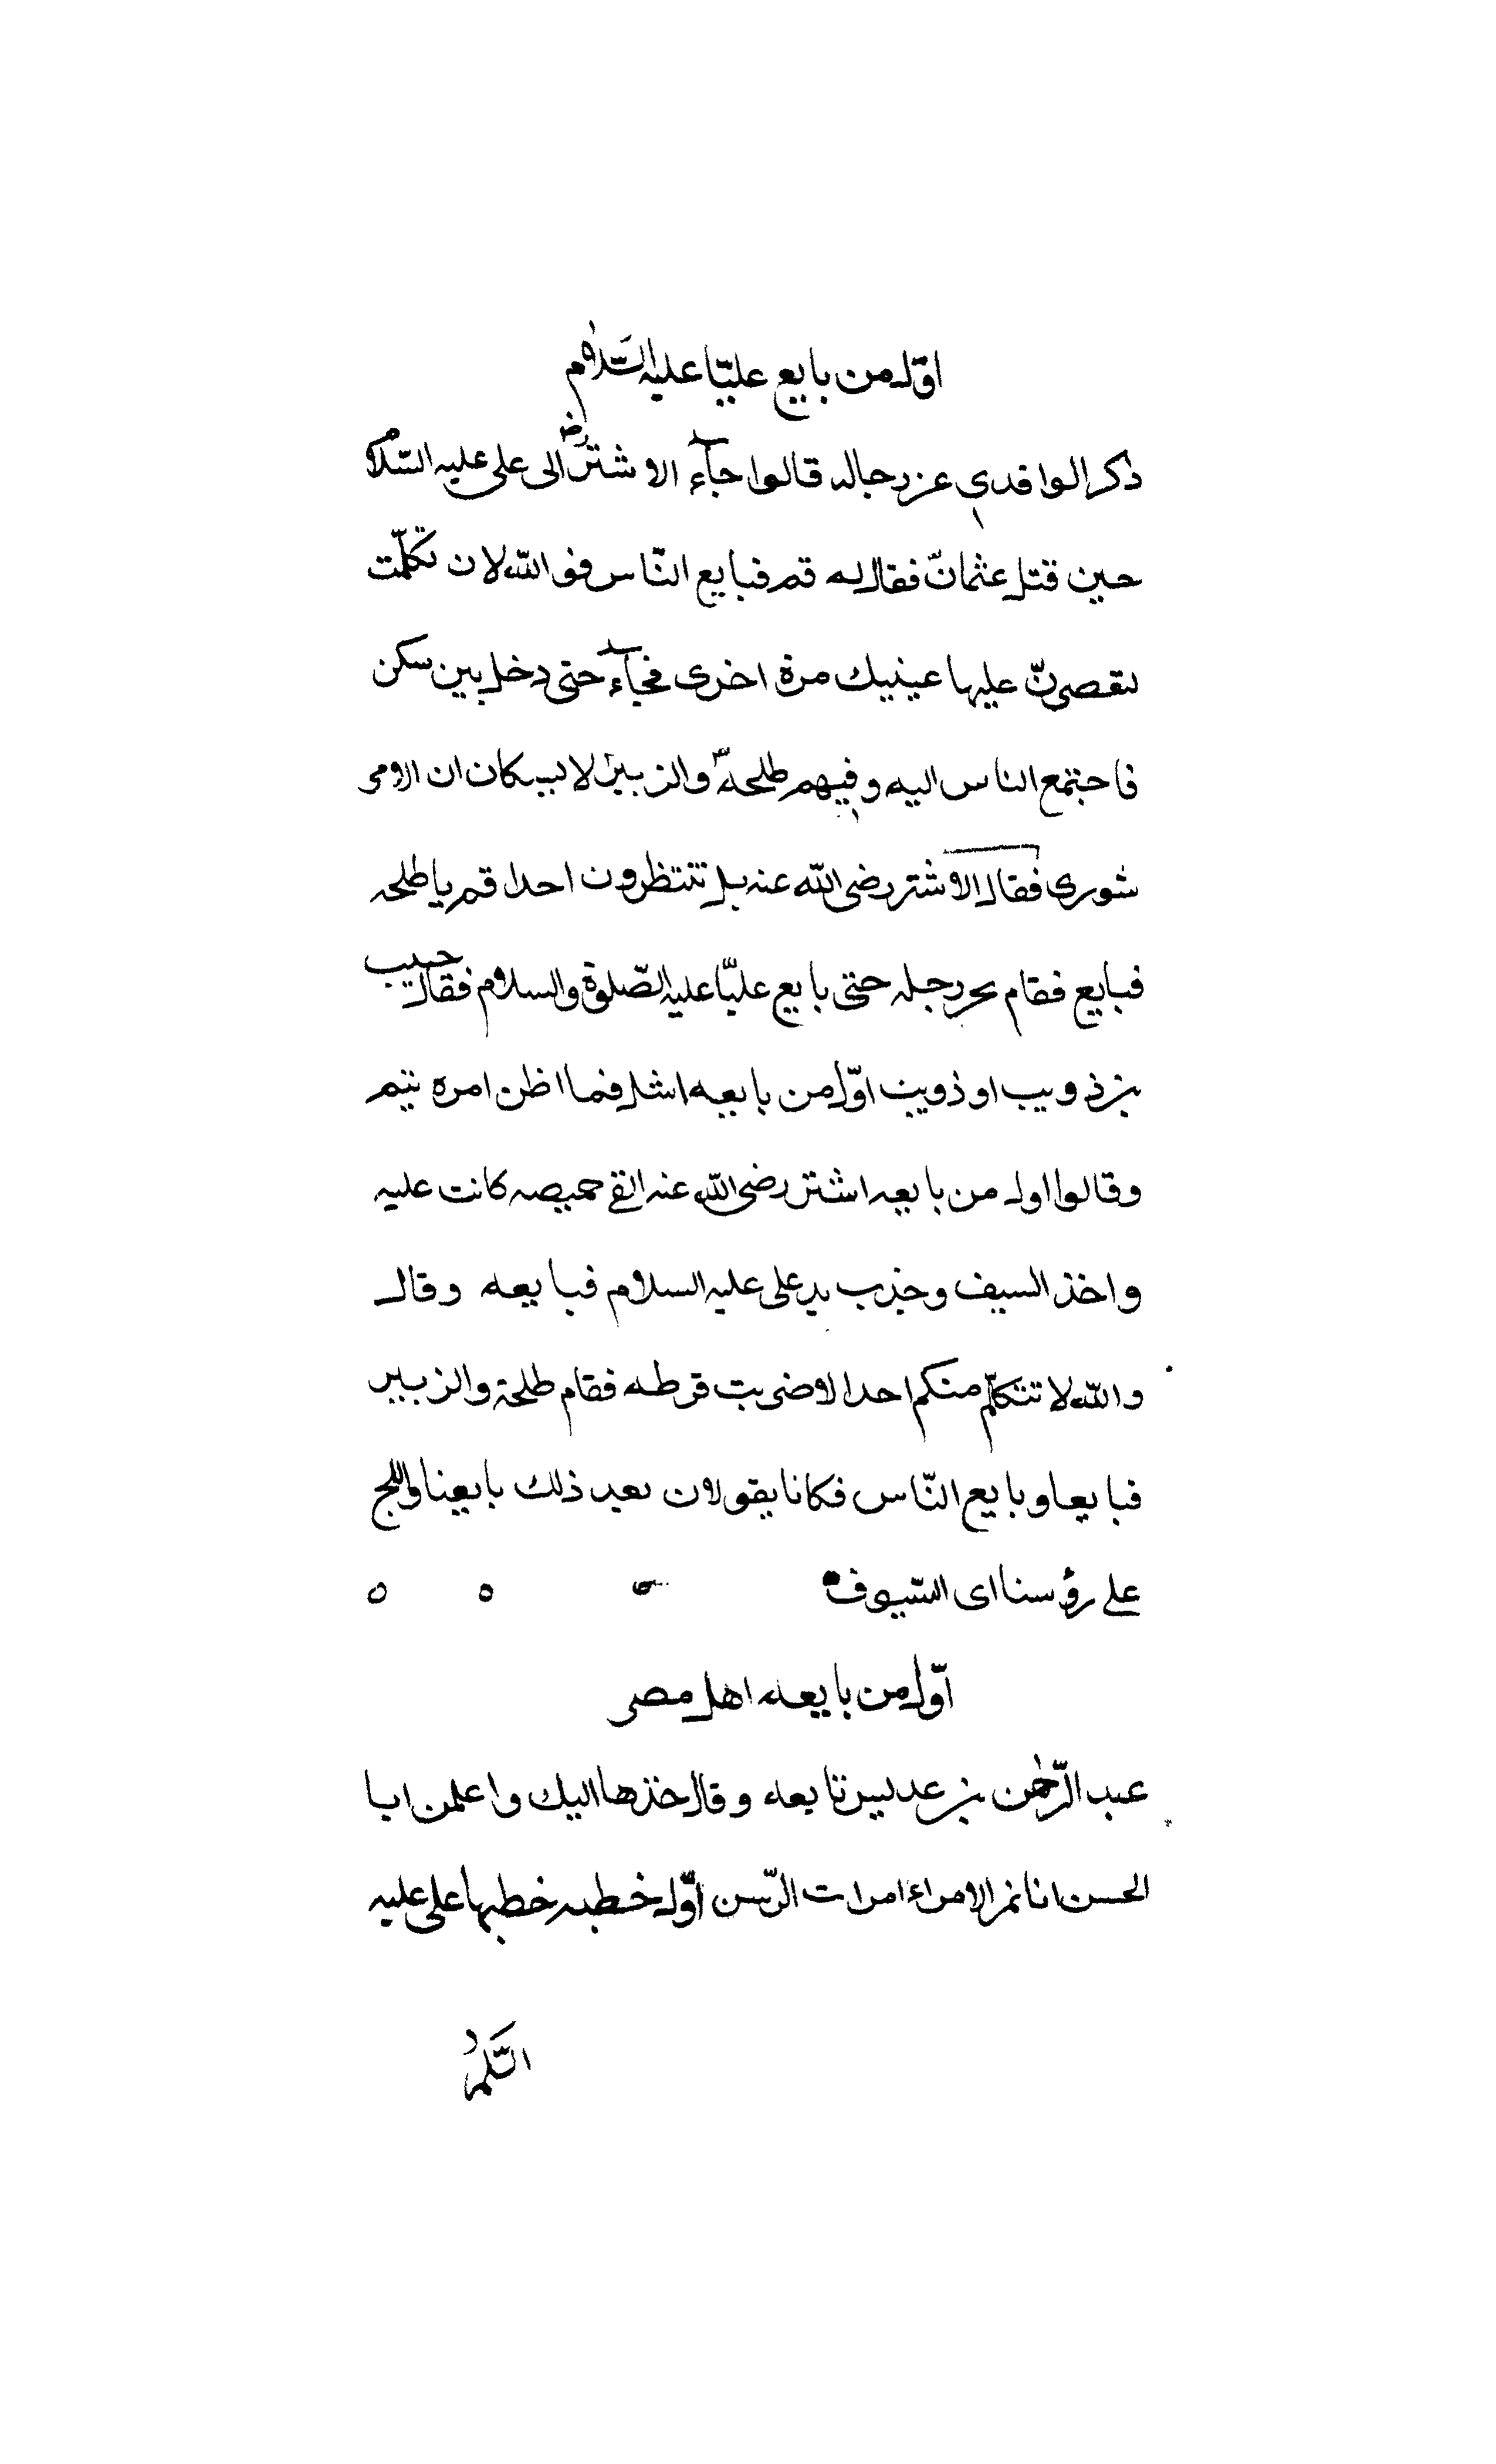 اوّل من بايع عليّا عليه السّلام
ذكر الواقدي عن رجاله قالوا جآء الاشتر رضـ الى على عليه السّلام
حين قتل عثمان فقال له قم فبايع النّاس فو الله لان نكلّت
لتعصرنّ عليها عينيك مرة اخرى فجآء حتى دخل بين سكن
فاجتمع الناس اليه وفيهم طلحة والزبير لا يشكان ان الامر
شورى فقال الاشتر رضى الله عنه بل تنتظرون احدا قم يا طلحه
فبايع فقام يجر رجله حتى بايع عليّا عليه الصّلوة والسلام فقال حبيب
بن ذويب او ذويب اوّل من بايعه اشل فما اظن امره يتم
وقالوا اول من بايعه اشتر رضى الله عنه القى خميصه كانت عليه
واخذ السيف وجذب يد على عليه السلام فبايعه وقال
والله لا تتكلّم منكم احد الا ضربت قرطه فقام طلحة والزبير
فبايعا وبايع النّاس فكانا يقولان بعد ذلك بايعنا واللج
على رؤسنا اى السّيوف
اوّل من بايعه اهل مصر
عبد الرّحمن بن عديس تابعه وقال خذها اليك واعلمن ابا
الحسن انا نمر الامراء امرات الرّسن اوّل خطبه خطبها على عليه
السّلم